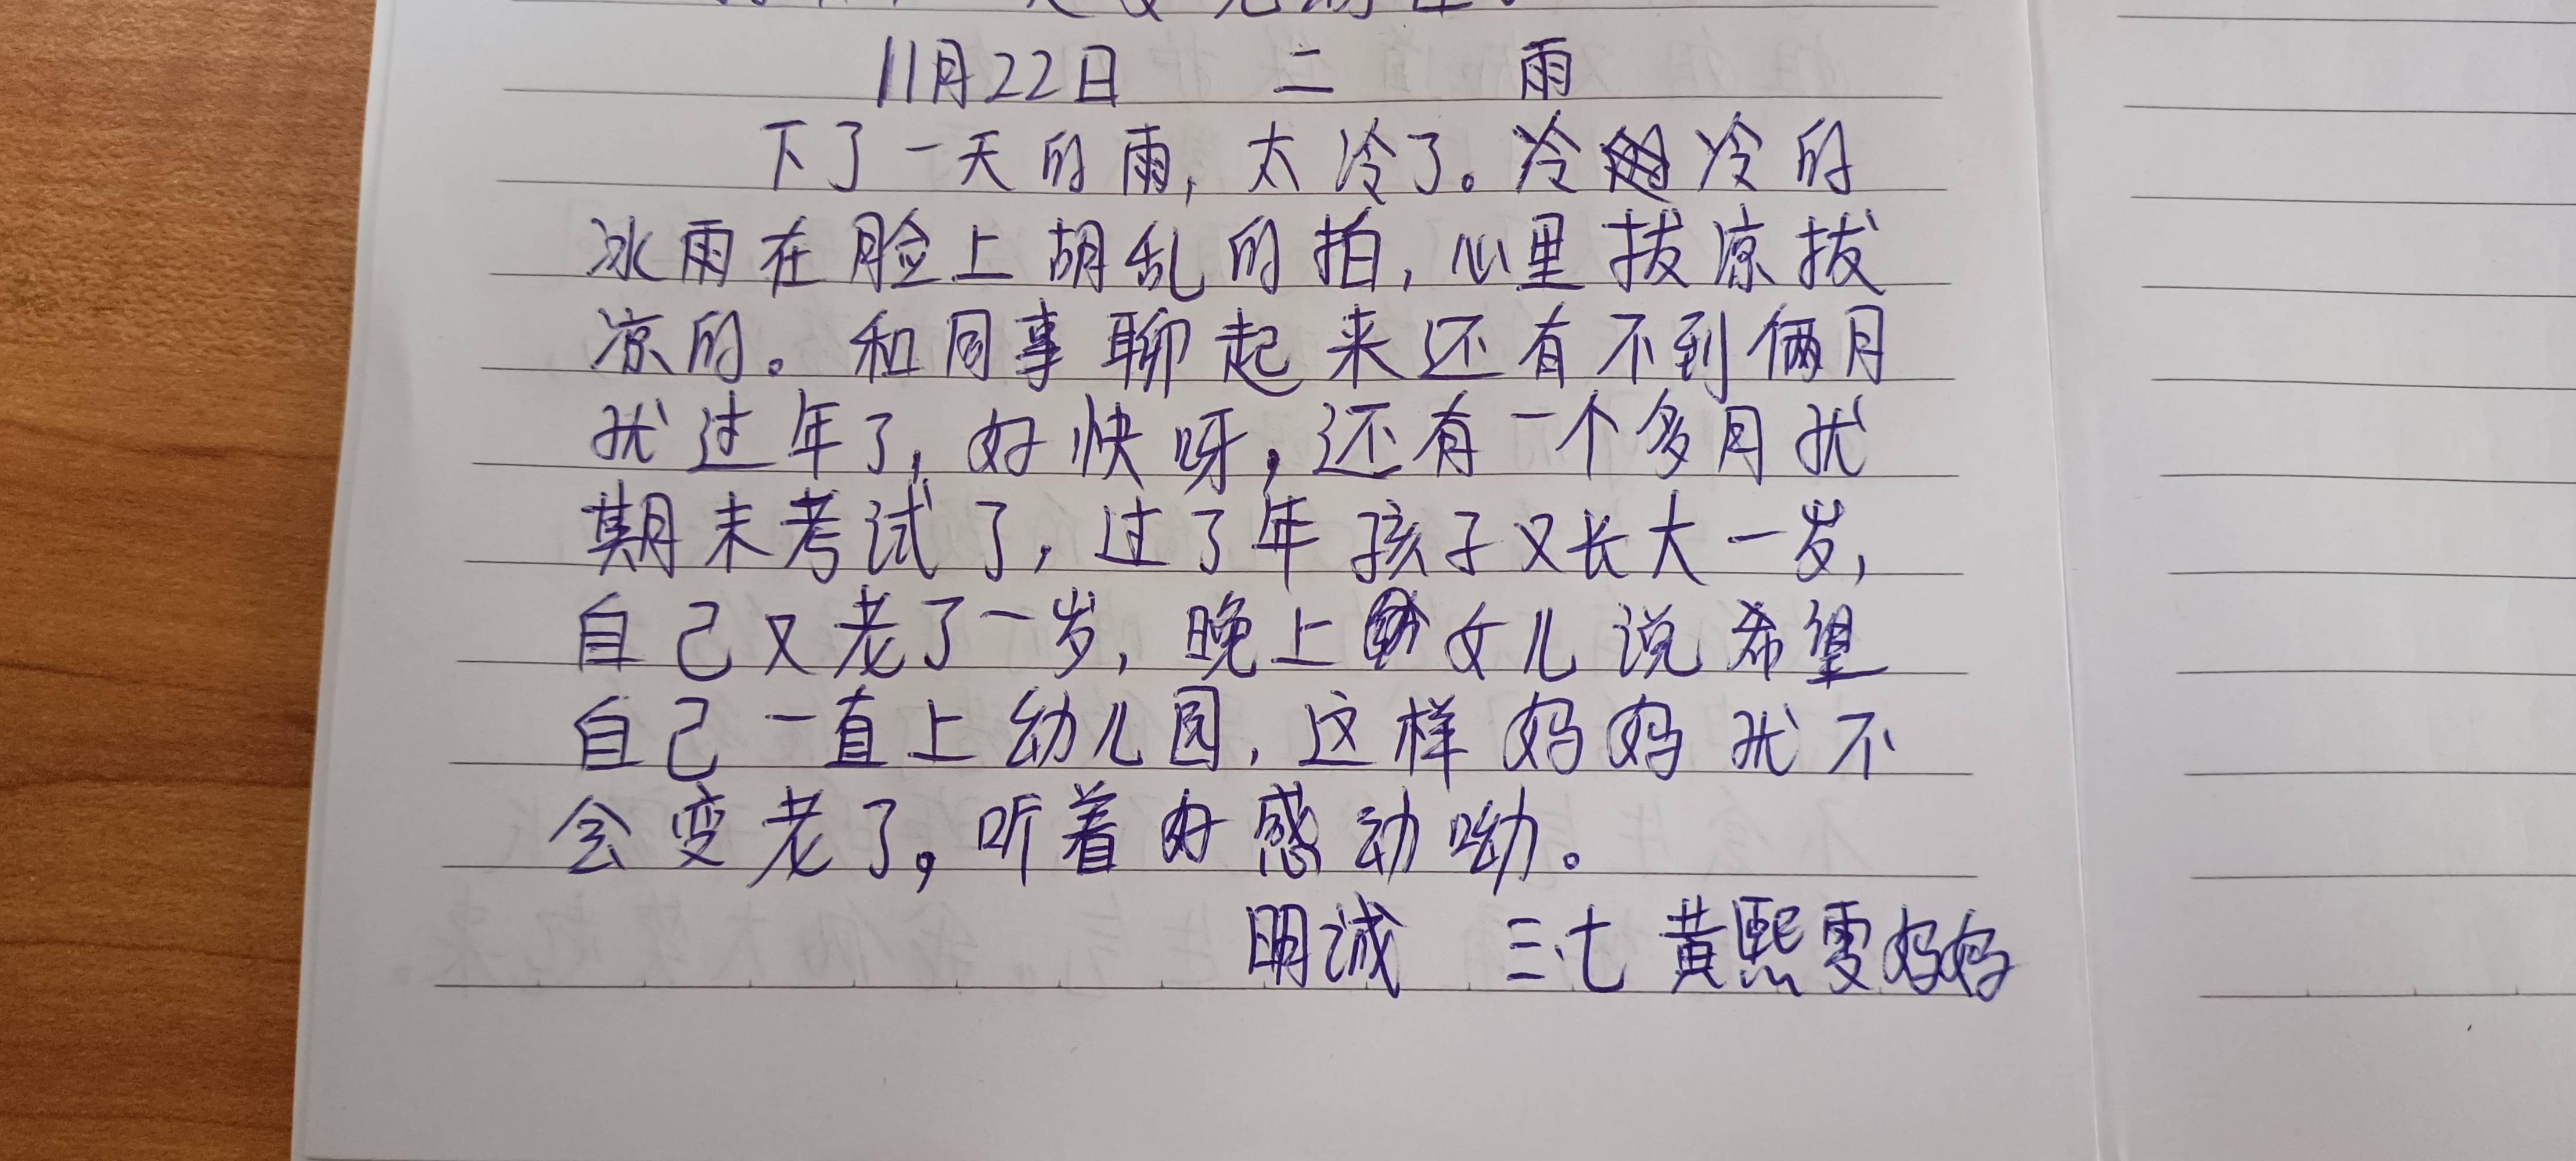 11月22日 二 雨
下了一天的雨,太冷了。冷冷的
冰雨在脸上胡乱的拍,心里拔凉拔
凉的。和同事聊起来还有不到俩月
就过年了,好快呀,还有一个多月就
期末考试了,过了年孩子又长大一岁,
自己又老了一岁,晚上女儿说希望
自己一直上幼儿园,这样妈妈就不
会变老了,听着好感动呦。
明诚 三.七 黄熙雯妈妈